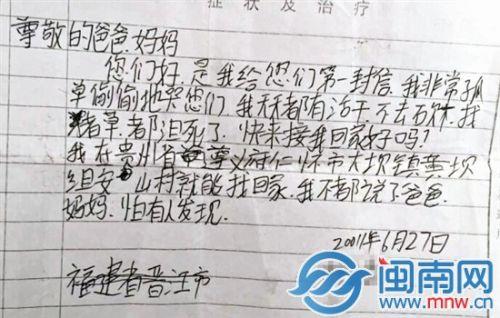 症状及治疗
尊敬的爸爸.妈妈
您们好.是我给您们第一封信.我非常孤
单偷偷地哭您们 我天都有活干.不去 找
猪草.都迫死了. 快来接我回家好吗?
我在贵州省 尊义府仁怀市大坝镇 坝
组安 山村就能找回家.我不都说了爸爸.
妈妈.怕有人发现.
2001年6月27日
福建省晋江市
闽南网
www.mnw.cn